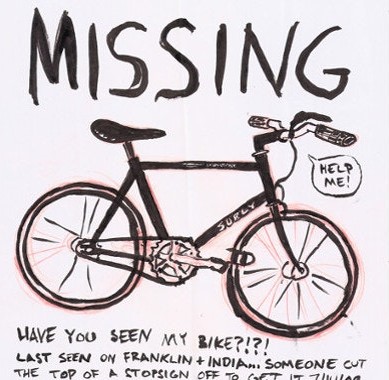 MISSING
HELP
ME!
SURLY
HAVE YOU SEEN MY BIKE?!?!
LAST SEEN ON FRANKLIN + INDIA... SOMEONE CUT
THE TOP OF A STOPSIGN OFF TO GET IT